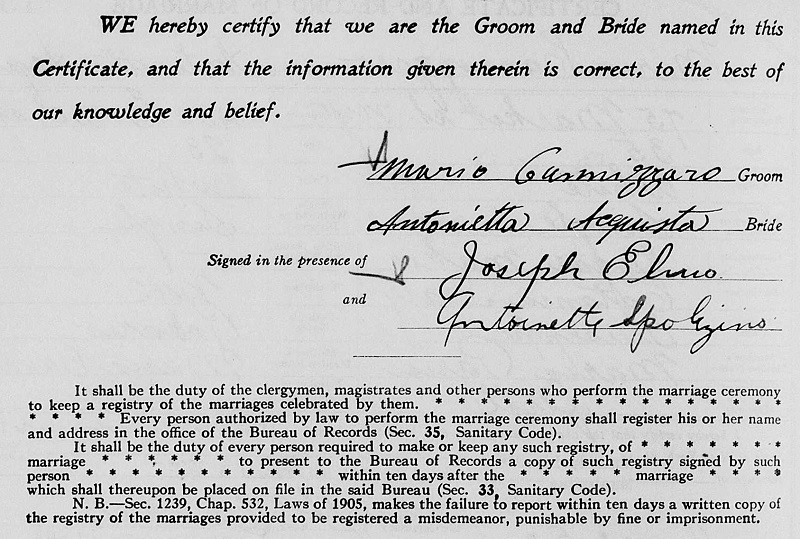 WE hereby certify that we are the Groom and Bride named in this
Certificate, and that the information given therein is correct, to the best of
our knowledge and belief.
Mario Cannizzaro Groom
Antonietta Acquista Bride
Signed in the presence of Joseph Elmo
and Antoinette Spolzino
It shall be the duty of the clergymen, magistrates and other persons who perform the marriage ceremony
to keep a registry of the marriages celebrated by them. * * * * * * * * * * * * * *
* * * * Every person authorized by law to perform the marriage ceremony shall register his or her name
and address in the office of the Bureau of Records (Sec. 35, Sanitary Code).
It shall be the duty of every person required to make or keep any such registry, of * * * * * * *
marriage * * * * * * to present to the Bureau of Records a copy of such registry signed by such
person * * * * * * * * * * * within ten days after the * * * * * marriage * * * *
which shall thereupon be placed on file in the said Bureau (Sec. 33, Sanitary Code).
N. B.—Sec. 1239, Chap. 532, Laws of 1905, makes the failure to report within ten days a written copy of
the registry of the marriages provided to be registered a misdemeanor, punishable by fine or imprisonment.